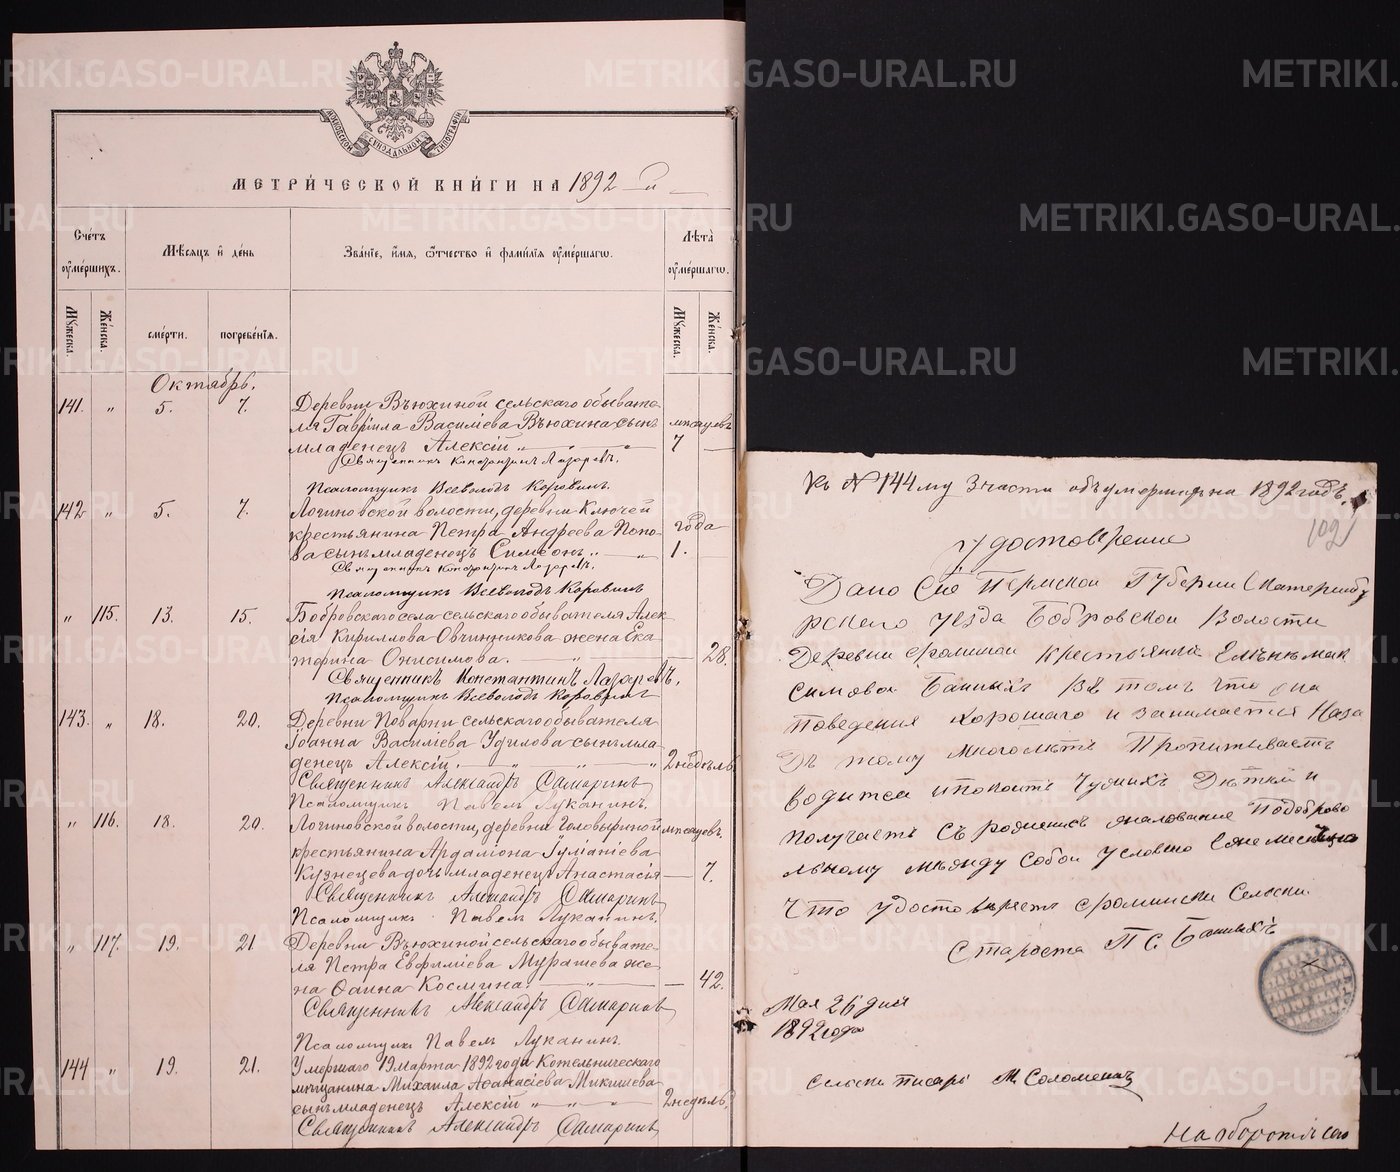 ДУХОВСКОЙ СѴНОДАЛЬНОЙ ТИПОГРАФІИ
МЕТРИ́ЧЕСКОЙ КНИ́ГИ НА 1892 й
Сче́тъ ᲂу҆ме́ршихъ.
Мѣ́сяцъ и҆ де́нь
Зва́нїе, и҆́мѧ, ѻ҆́тчество и҆ фами́лїѧ ᲂу҆ме́ршагѡ.
Лѣ́та ᲂу҆ме́ршагѡ.
Мꙋ́жеска.
Же́нска.
сме́рти.
погребе́нїѧ.
Мꙋ́жеска.
Же́нска.
Октябрь.
141. " 5. 7. Деревни Вьюхиной сельскаго обывате-
ля Гавріила Василіева Вьюхина сынъ мѣсяцевъ
младенецъ Алексій " — " — 7 —
Священникъ Константинъ Лазаревъ.
Псаломщикъ Всеволодъ Коровинъ.
142 " 5. 7. Логиновской волости, деревни Ключей
крестьянина Петра Андреева Попо- года
ва сынъ младенецъ Симеонъ " — " 1.
Священникъ Константинъ Лазаревъ.
Псаломщикъ Всеволодъ Коровинъ
" 115. 13. 15. Бобровскаго села сельскаго обывателя Алек-
сія Кириллова Овчинникова жена Ека-
терина Онисимова. — " — 28.
Священникъ Константинъ Лазаревъ.
Псаломщикъ Всеволодъ Коровинъ
143. " 18. 20. Деревни Поварни сельскаго обывателя
Іоанна Василіева Удилова сынъ мла-
денецъ Алексій. — " — " 2 недѣль
Священникъ Александръ Самаринъ
Псаломщикъ Павелъ Луканинъ.
" 116. 18. 20. Логиновской волости, деревни Головыриной мѣсяцевъ
крестьянина Ардаліона Іуліаніева
Кузнецева дочь младенецъ Анастасія — 7.
Священникъ Александръ Самаринъ
Псаломщикъ Павелъ Луканинъ.
" 117. 19. 21 Деревни Вьюхиной сельскаго обывате-
ля Петра Евфиміева Мурашева же-
на Фаина Космина. — " — 42.
Священникъ Александръ Самаринъ
Псаломщикъ Павелъ Луканинъ.
144 " 19. 21. Умершаго 19 марта 1892 года Котельническаго
мѣщанина Михаила Аѳанасіева Микшева
сынъ младенецъ Алексій " — " — " 2 недѣль.
Священникъ Александръ Самаринъ
Къ № 144 му 3 части объ умершихъ на 1892 годъ.
102
Удостоверение
Дано Сие Пермской Губернии Екатеринбу
рского уезда Бобровской Волости
Деревни крестьянки
симовой Банныхъ Въ томъ что она
поведения хорошаго и занимается Наза
дъ тому многолетъ Пропитываетъ
водится Чужихъ Детей и
получаетъ Съ родителей жалование Подоброво
льному между Собой Условию Ежемесячно
Что удостоверяетъ Сельски
Староста П С. Банныхъ
Мая 26 дня
1892 года
Сельски писарь М. Соломеинъ
На оборотѣ сего
METRIKI.GASO-URAL.RU